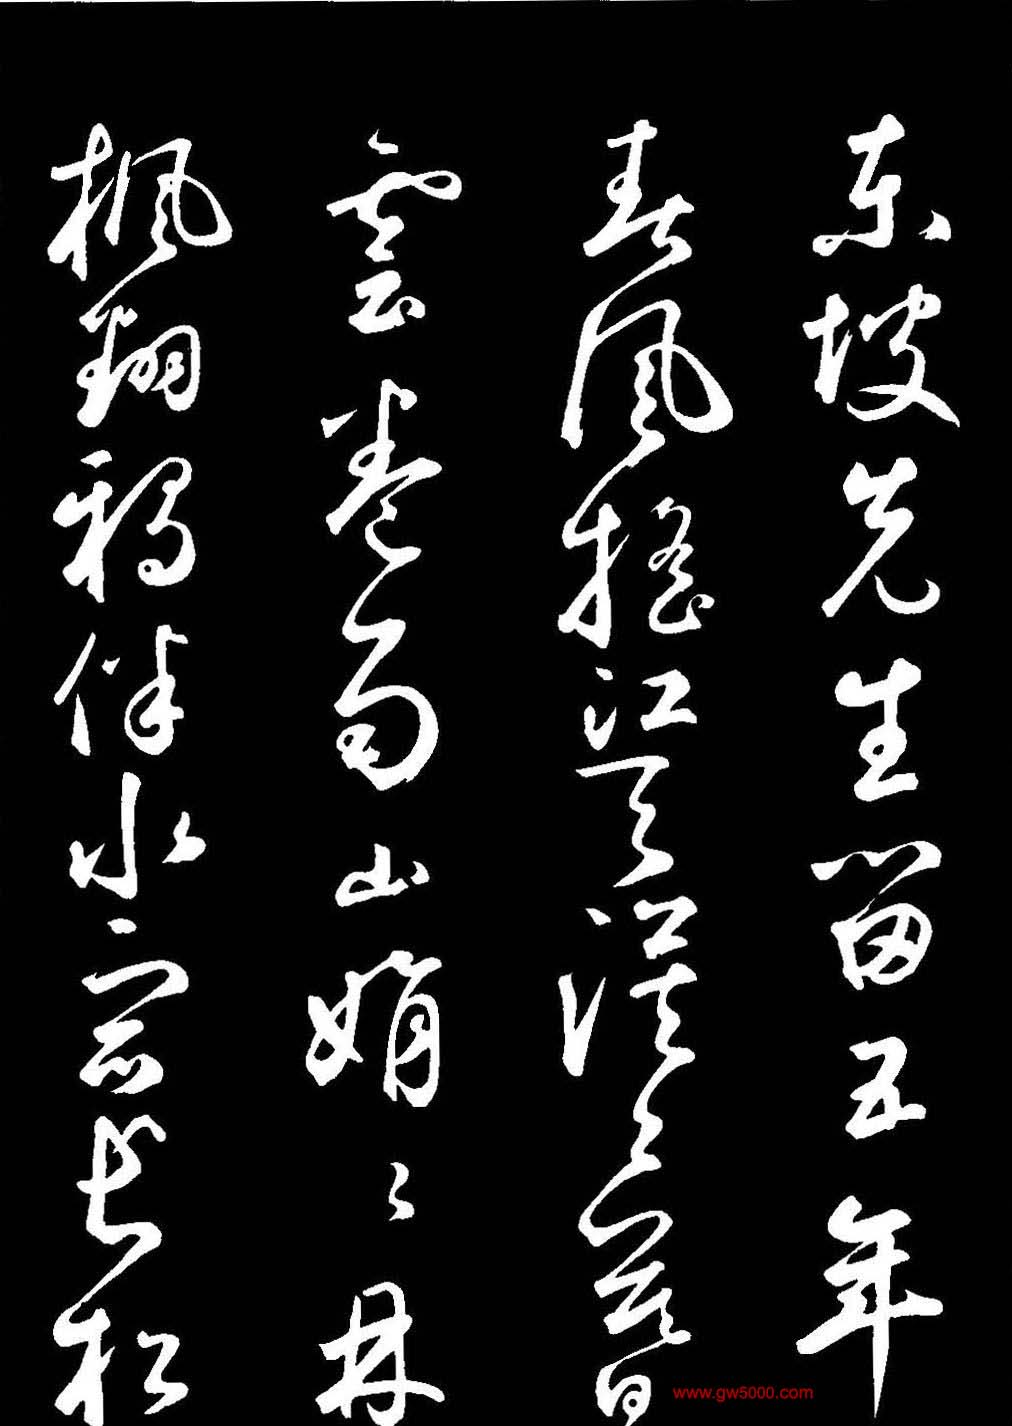 東坡先生留五年
春風摇江天漠々暮
雲卷雨山娟々丹
楓翻鴉伴水宿長松
www.gw5000.com